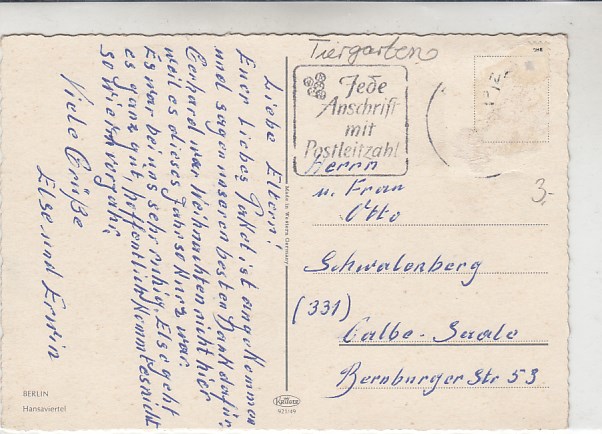 Tiergarten
Jede
Anschrift
mit
Postleitzahl
Liebe Eltern!
Euer liebes Paket ist angekommen
und sagen unseren besten Dank dafür.
Gerhard war Weihnachten nicht hier
weil es dieses Jahr so kurz war.
Es war bei uns sehr ruhig. Else geht
es ganz gut, hoffentlich kommt es nicht
so wie im vorjahr.
Viele Grüße
Else und Erwin
Herrn
u. Frau
Otto
Schwalenberg
(331)
Calbe-Saale
Bernburger Str 53
3,-
Made in Western Germany
BERLIN
Hansaviertel
Krüger
923/49